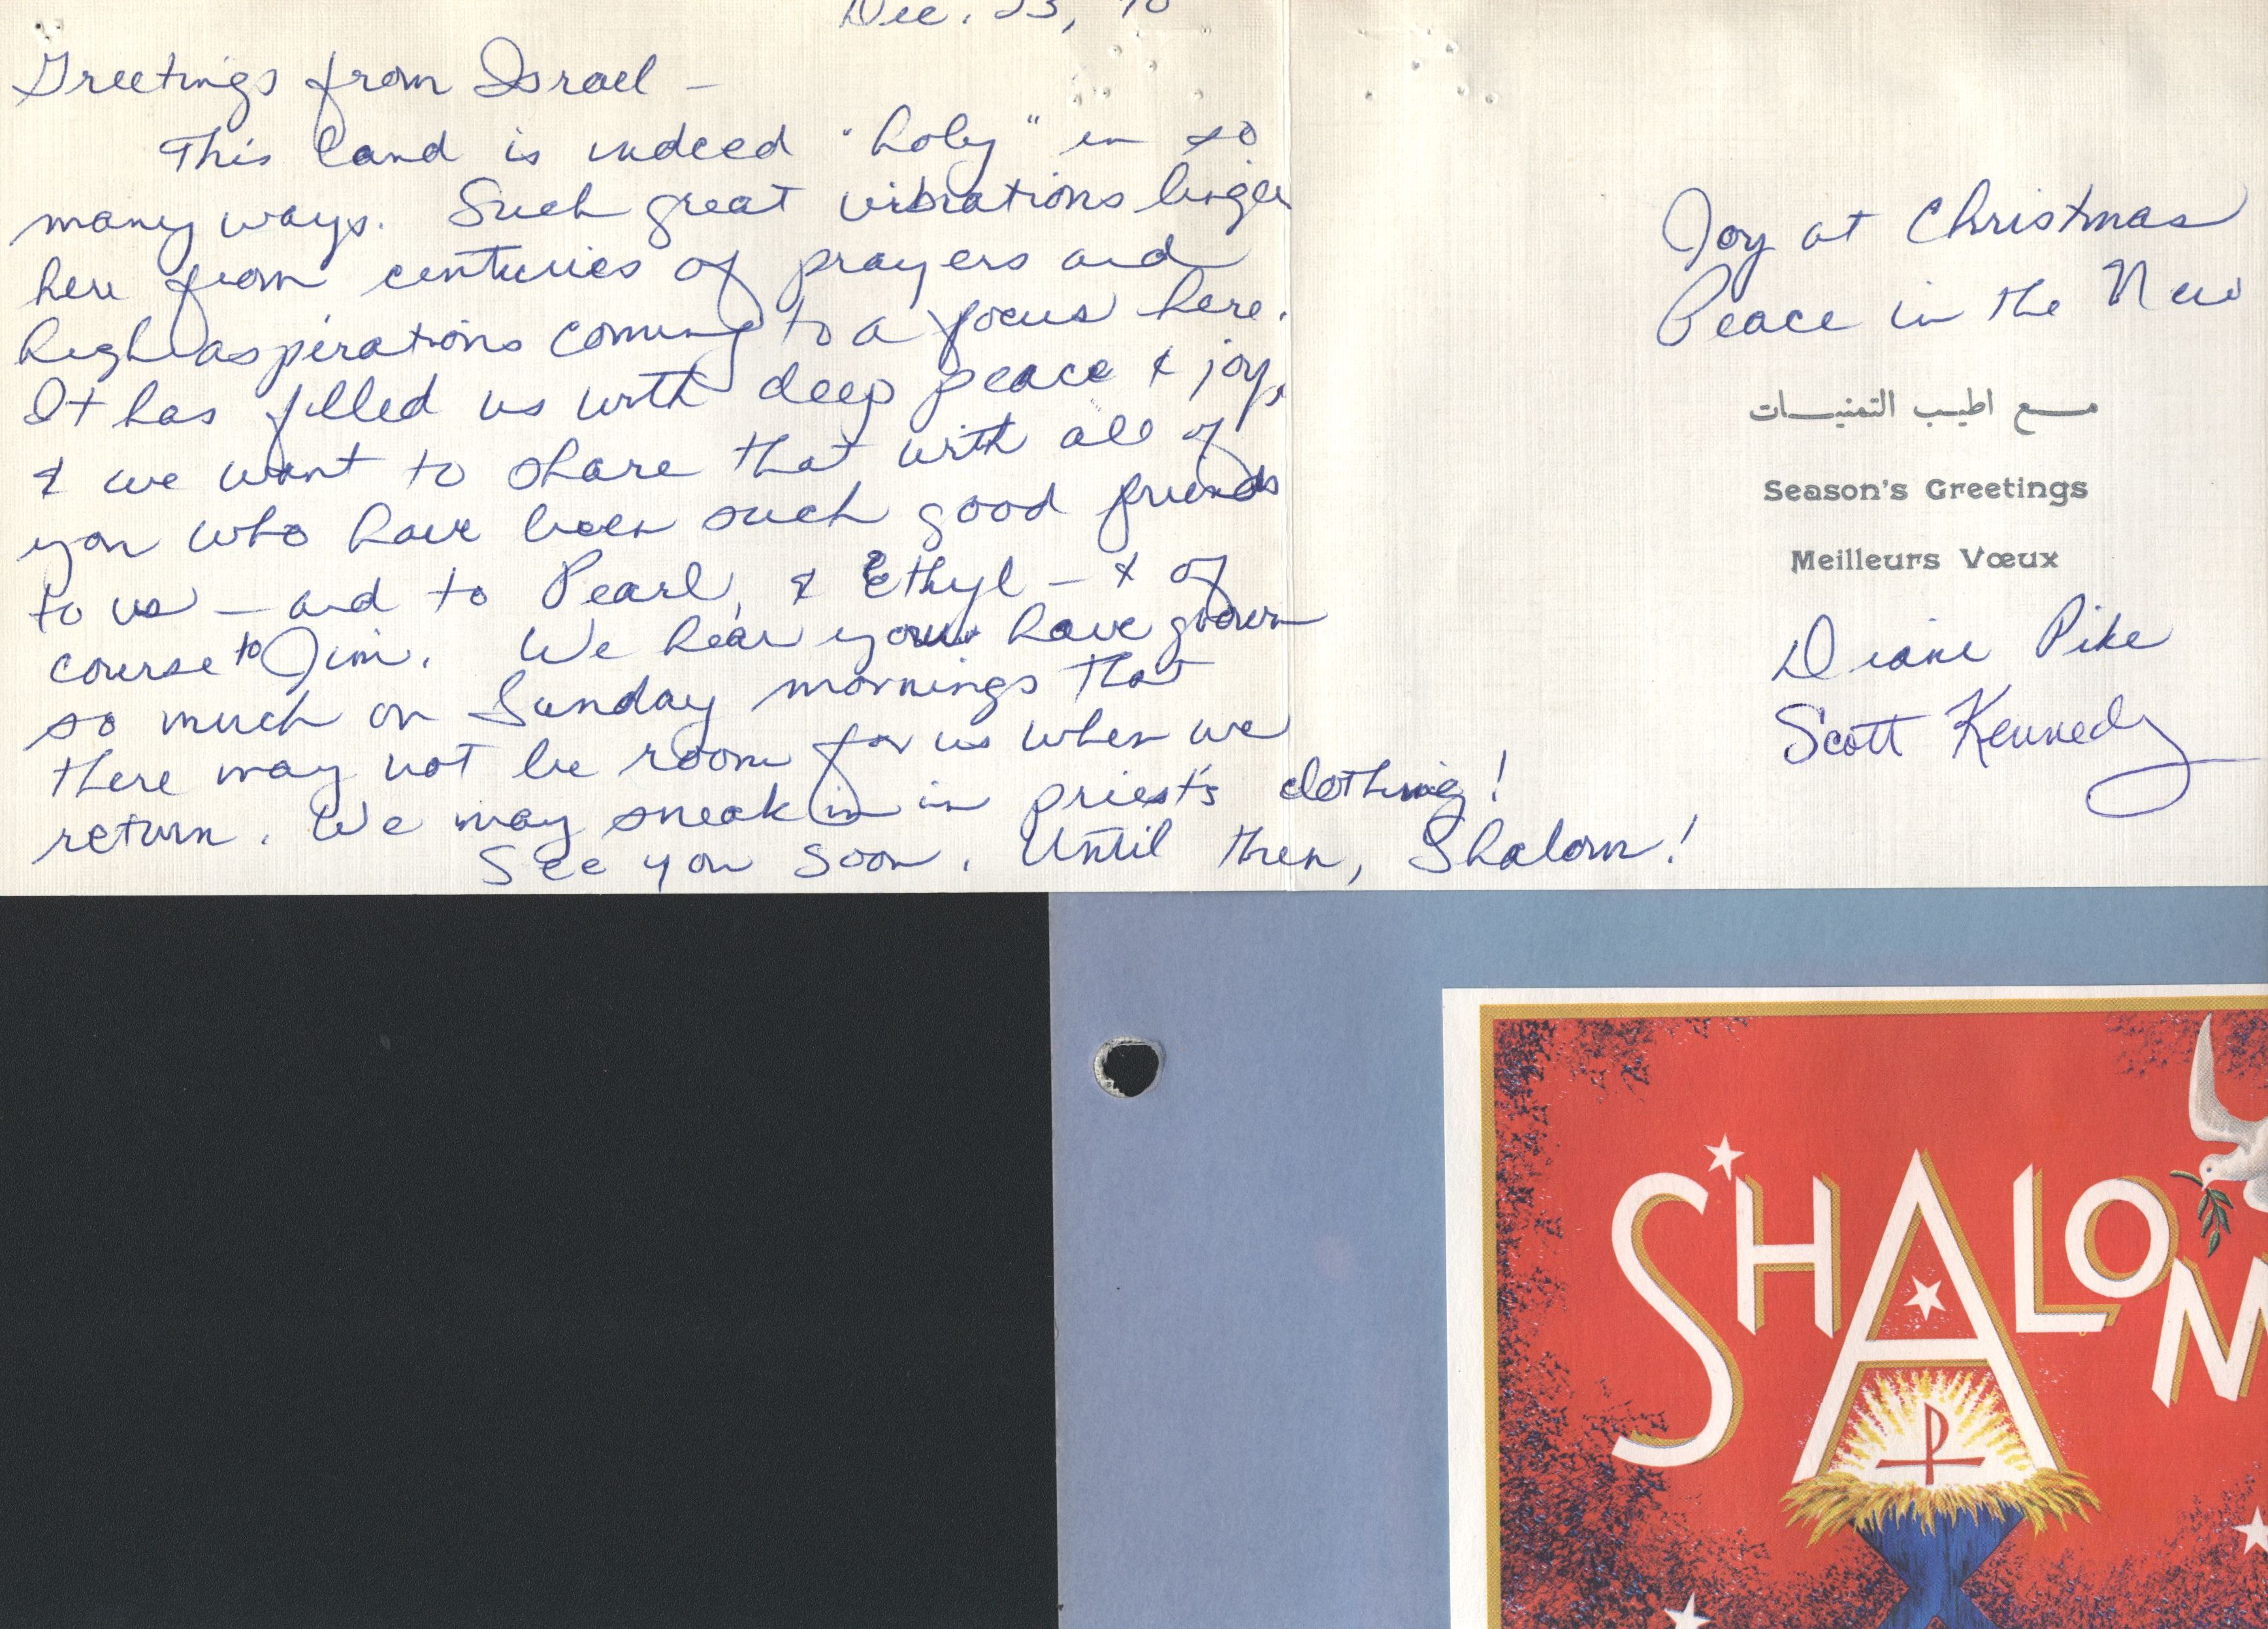 Dec. 23, 70
Greetings from Israel –
This land is indeed "holy" in so
many ways. Such great vibrations linger
here from centuries of prayers and
high aspirations coming to a focus here.
It has filled us with deep peace & joy,
& we want to share that with all of
you who have been such good friends
to us – and to Pearl, & Ethyl – & of
course to Jim. We hear you have grown
so much on Sunday mornings that
there may not be room for us when we
return. We may sneak in in priest's clothing!
See you soon. Until then, Shalom!
Joy at Christmas
Peace in the New
مع اطيب التمنيات
Season's Greetings
Meilleurs Vœux
Diane Pike
Scott Kennedy
SHALOM